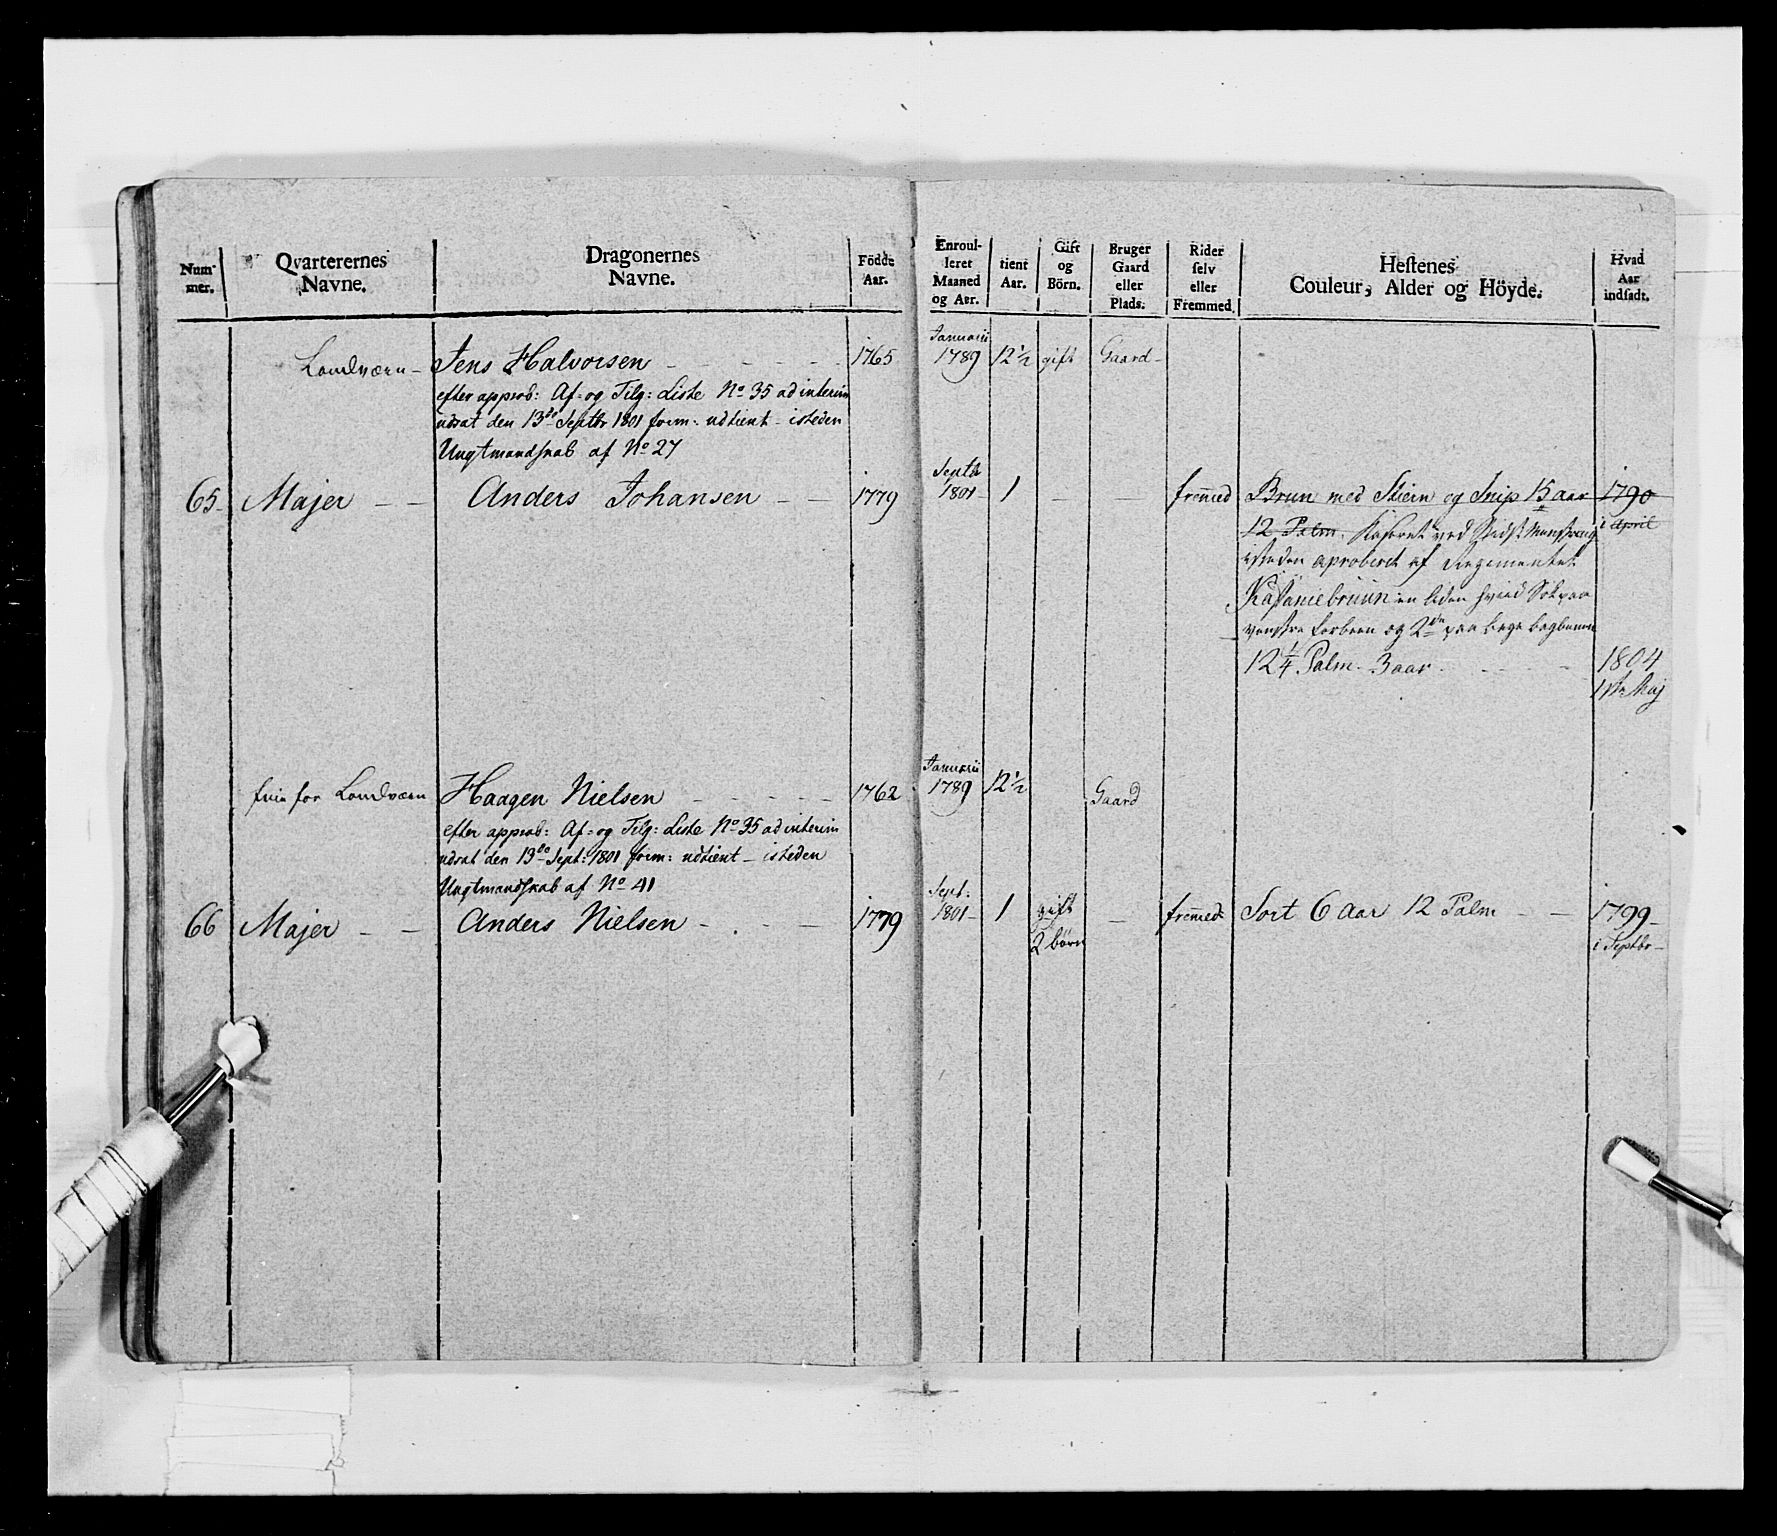 Num-
mer.
Qvarterernes
Navne.
Dragonernes
Navne.
Födde
Aar.
Enroul-
leret
Maaned
og Aar.
tient
Aar.
Gift
og
Börn.
Bruger
Gaard
eller
Plads.
Rider
selv
eller
Fremmed
Hestenes
Couleur, Alder og Höyde.
Hvad
Aar
indsadt.
Januarii
Landværn - Jens Halvorsen - - - - - 1765 1789 12 1/2 gift Gaard -
efter approb: Af- og Tilg: Liste No 35 ad interim
udsat den 13de Septbr 1801 form: udtient - isteden
Ungtmandskab af No 27
Septbr
65 Majer - - Anders Johansen - - 1779 1801 - 1 - - fremmed Brun med Stiern og Snip 15 aar 1790
12 Palm. Kaseret ved Munstring i April
isteden aproberet af Regimentet
Kastaniebruun en liden hviid Sok paa
venstre forbeen og 2de paa begge bagbeenen
12 1/4 Palm. 3 aar. - - - 1804
1ste Maj
Januarii
frie for Landværn Haagen Nielsen - - - - - 1762 1789 12 1/2 Gaard
efter approb: Af- og Tilg: Liste No 35 ad interim
udsat den 13de Sept: 1801 form: udtient - isteden
Ungtmandskab af No 41
Sept:
66 Majer - - Anders Nielsen - - - 1779 1801 - 1 gift - fremmed Sort 6 Aar 12 Palm - - 1799 -
2 börn i Septbr -